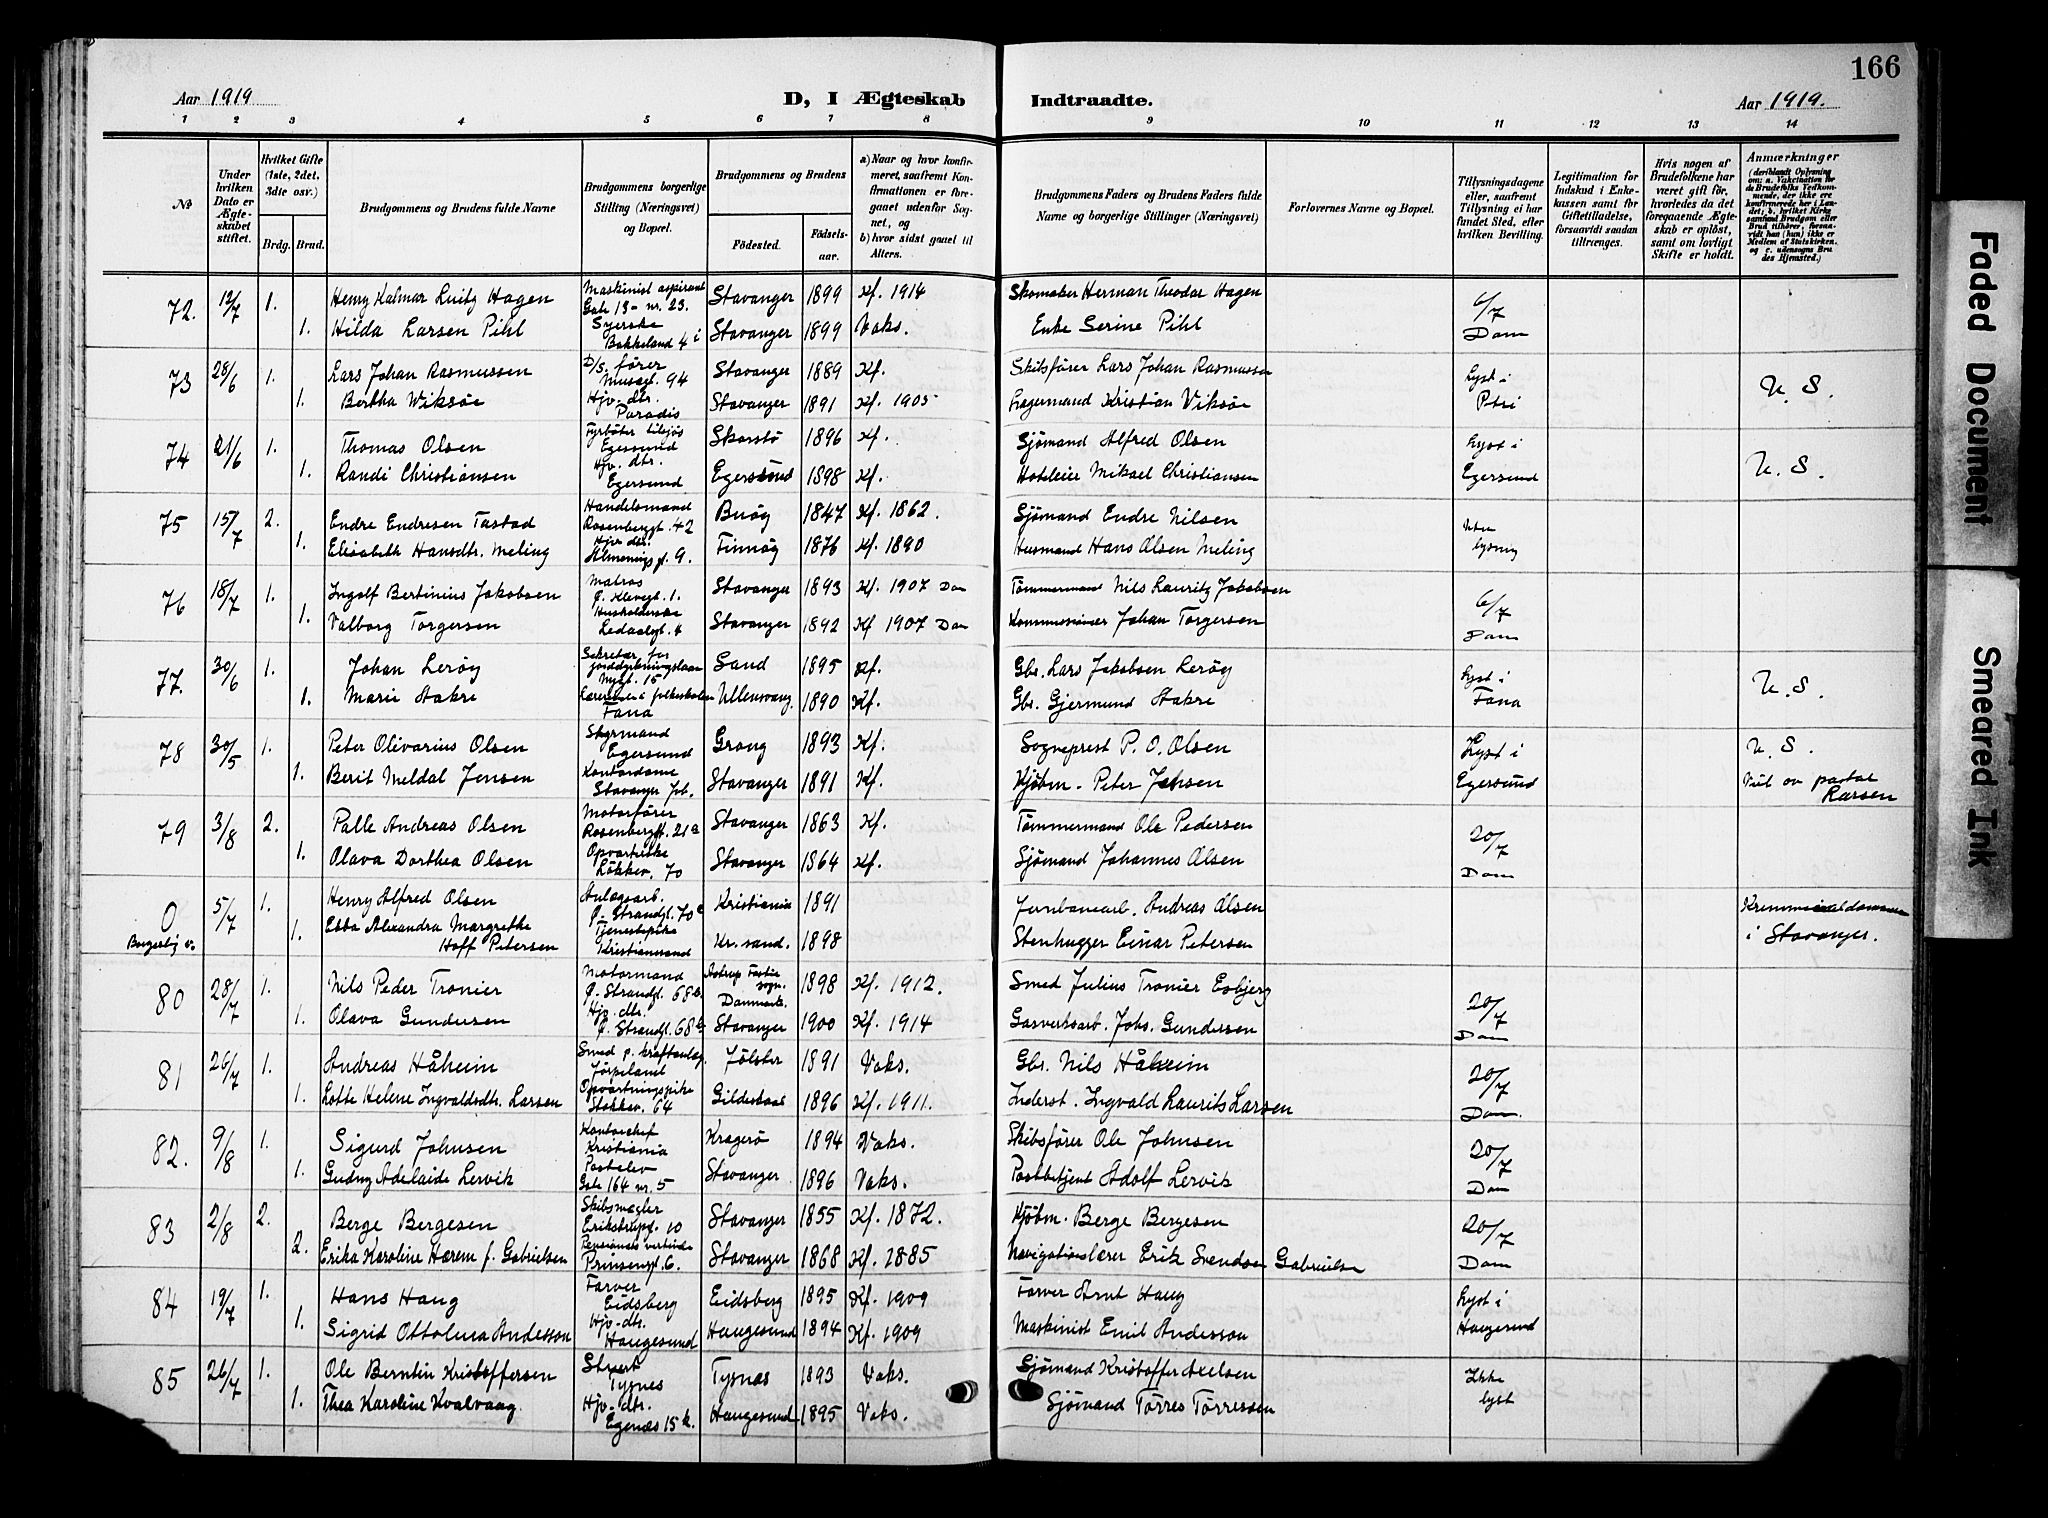 166
Aar 1919
D, I Ægteskab
Indtraadte.
Aar 1919.
1 2 3 4 5 6 7 8 9 10 11 12 13 14
No
Under hvilken Dato er Ægteskabet stiftet.
Hvilket Gifte (1ste, 2det, 3die osv.)
Brdg. Brud.
Brudgommens og Brudens fulde Navne
Brudgommens borgerlige Stilling (Næringsvei) og Bopæl.
Brudgommens og Brudens
Fødested. Fødselsaar.
a) Naar og hvor konfirmeret, saafremt Konfirmationen er foregaaet udenfor Sognet, og
b) hvor sidst gaaet til Alters.
Brudgommens Faders og Brudens Faders fulde Navne og borgerlige Stillinger (Næringsvei)
Forlovernes Navne og Bopæl.
Tillysningsdagene eller, saafremt Tillysning ei har fundet Sted, efter hvilken Bevilling.
Legitimation for Indskud i Enkekassen samt for Giftetilladelse, forsaavidt saadan tiltrænges.
Hvis nogen af Brudefolkene har været gift før, hvorledes da det foregaaende Ægteskab er opløst, samt om lovligt Skifte er holdt.
Anmærkninger
(deriblandt Oplysning om: a. Vakcination for de Brudefolks Vedkommende, der ikke ere konfirmerede her i Landet; b. hvilket Kirkesamfund Brudgom eller Brud tilhører, forsaavidt han (hun) ikke er Medlem af Statskirken, og c. udensogns Brudes Hjemsted.)
72. 12/7 1. Henry Kalmar Luitz Hagen Maskinist aspirant Gate 13 - nr. 23. Stavanger 1899 Kf. 1914 Skomaker Herman Theodor Hagen 6/7
1. Hilda Larsen Pihl Syerske Bakkeland 4 i Stavanger 1899 Vaks. Enke Serine Pihl Dom
73 28/6 1. Lars Johan Rasmussen D/S. fører Musegt. 94 Stavanger 1889 Kf. Skibsfører Lars Johan Rasmussen Lyst i
1. Bertha Wiksøe Hjv. dtr. Paradis Stavanger 1891 Kf. 1905 Lagermand Kristian Viksøe Petri U. S.
74 21/6 1. Thomas Olsen Fyrbøter tilsjøs Egersund 1896 Kf. Sjømand Alfred Olsen Lyst i
1. Randi Christiansen Hjv. dtr. Egersund Egersund 1898 Kf. Hoteleier Mikael Christiansen Egersund U. S.
75 15/7 2. Endre Endresen Tastad Handelsmand Rosenberggt. 42 Buøy 1847 Kf. 1862. Sjømand Endre Nilsen Uten
1. Elisabeth Hansdtr. Meling Hjv. dtr. Almenings pl. 9. Finnøy 1876 Kf. 1890 Husmand Hans Olsen Meling lysning
76 18/7 1. Ingolf Bertinius Jakobsen Matros Ø. Klevegt. 1. Stavanger 1893 Kf. 1907 Dom Tømmermand Nils Lauritz Jakobsen 6/7
1. Valborg Torgersen Husholderske Ledaalsgt. 4 Stavanger 1892 Kf 1907 Dom Kommisionær Johan Torgersen Dom
77. 30/6 1. Johan Lerøy Sekretær for jorddyrkningslaan Nygt. 15 Sand 1895 Kf. Gbr. Lars Jakobsen Lerøy Lyst i
1. Marie Aakre Lærerinde i folkeskolen Fana Ullensvang. 1890 Kf. Gbr. Gjermund Aakre Fana U. S.
78 30/5 1. Peter Olivarius Olsen Styrmand Egersund Grong 1893 Kf. Sogneprest P. O. Olsen Lyst i U. S.
1. Berit Meldal Jensen Kontordame Stavanger Stavanger 1891 Kf. Kjøbm. Peter Jensen Egersund Viet av pastor Larsen
79 3/8 2. Palle Andreas Olsen Motorfører Rosenberggt. 21a Stavanger 1863 Kf. Tømmermand Ole Pedersen 20/7
1. Olava Dorthea Olsen Opvarterske Løkkev. 70 Stavanger 1864 Kf. Sjømand Johannes Olsen Dom
0 Borgerlig v. 5/7 1. Henry Alfred Olsen Anlægsarb. Ø. Strandgt. 70c Kristiania 1891 Jernbanearb. Andreas Olsen
1. Ebba Alexandra Margrethe Hoff Petersen Tjenestepike Kristianssand Kr. sand. 1898 Stenhugger Einar Petersen i Stavanger.
80 28/7 1. Nils Peder Tronier Motormand Ø. Strandgt. 68b sogn. Danmark 1898 Kf. 1912. Smed Julius Tronier Esbjerg 20/7
1. Olava Gundersen Hjv. dtr. Ø. Strandgt. 68b Stavanger 1900 Kf. 1914 Gasverksarb. Johs. Gundersen Dom
81 26/7 1. Andreas Håheim Smed p. kraftanlæg. Jørpeland Jølster 1891 Vaks. Gbr. Nils Håheim 20/7
1. Lotte Helene Ingvaldsdtr. Larsen Opvartningspike Stokkev. 64 Gildeskaal 1896 Kf. 1911. Inderst. Ingvald Laurits Larsen Dom.
82. 9/8 1. Sigurd Johnsen Kontorchef Kristiania Kragerø 1894 Vaks. Skibsfører Ole Johnsen 20/7
1. Gudny Adelaide Lervik Postelev Gate 164 nr. 5 Stavanger 1896 Vaks. Postbetjent Adolf Lervik Dom
83 2/8 2. Berge Bergesen Skibsmægler Erikstrupgt. 10 Stavanger 1855 Kf. 1872. Kjøbm. Berge Bergesen 20/7
2. Erika Karoline Hærem f. Gabrielsen Pensionats vertinde Prinsensgt. 6. Stavanger 1868 Kf. 1885 Navigationslærer Erik Svendsen Gabrielsen Dom
84 19/7 1. Hans Haug Farver Eidsberg Eidsberg 1895 Kf. 1909 Farver Arnt Haug Lyst i
1. Sigrid Ottolina Andersson Hjv. dtr. Haugesund Haugesund 1894 Kf. 1909 Maskinist Emil Andersson Haugesund
85 26/7 1. Ole Berntin Kristoffersen Stuert Tysnes Tysnæs 1893 Vaks. Sjømand Kristoffer Axelsen Ikke
1. Thea Karoline Kvalvaag. Hjv. dtr. Egenæs 15 k. Haugesund 1895 Vaks. Sjømand Tørres Tørressen lyst
Faded Document
Smeared Ink